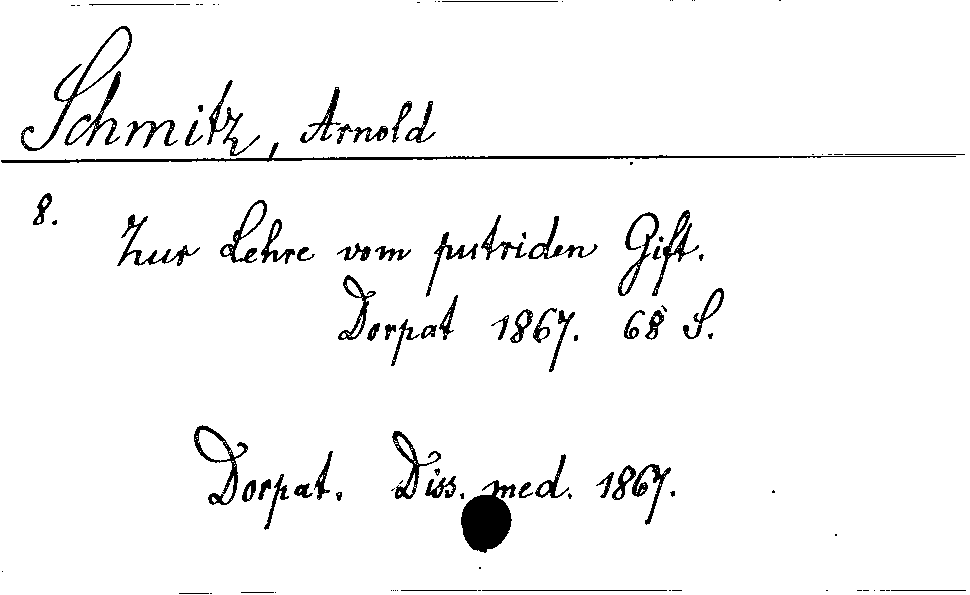 Schmitz, Arnold
8.
Zur Lehre vom putriden Gift.
Dorpat 1867. 68 S.
Dorpat. Diss. med. 1867.